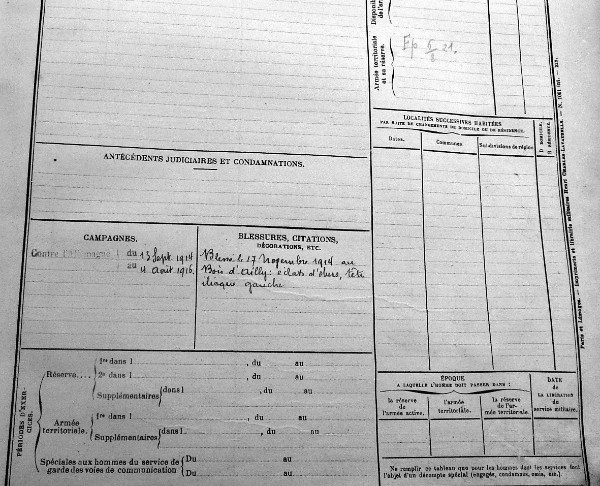 Disponibilité
de l'ar
Armée territoriale
et sa réserve.
LOCALITÉS SUCCESSIVES HABITÉES
PAR SUITE DE CHANGEMENTS DE DOMICILE OU DE RÉSIDENCE.
Dates.
Communes.
Subdivisions de région
D DOMICILE,
R RÉSIDENCE.
ANTÉCÉDENTS JUDICIAIRES ET CONDAMNATIONS.
CAMPAGNES.
Contre l'Allemagne
du 13 Sept. 1914
au 4 août 1916.
BLESSURES, CITATIONS,
DÉCORATIONS, ETC.
Blessé le 17 Novembre 1914 au
Bois d'Ailly: éclats d'obus, tête
gauche
PÉRIODES D'EXER-
CICES.
Réserve....
1re dans l , du au
2e dans l , du au
Supplémentaires dans l , du au
Armée
territoriale.
1re dans l , du au
Supplémentaires dans l. , du au
Spéciales aux hommes du service de
garde des voies de communication
Du au
Du au
ÉPOQUE
A LAQUELLE L'HOMME DOIT PASSER DANS :
la réserve
de l'armée active.
l'armée
territoriale.
la réserve
de l'ar-
mée territoriale.
DATE
de
LA LIBÉRATION
du
service militaire.
Ne remplir ce tableau que pour les hommes dont les services font
l'objet d'un décompte spécial (engagés, condamnés, omis, etc.)
Paris et Limoges. — Imprimerie et librairie militaires Henri CHARLES-LAVAUZELLE.